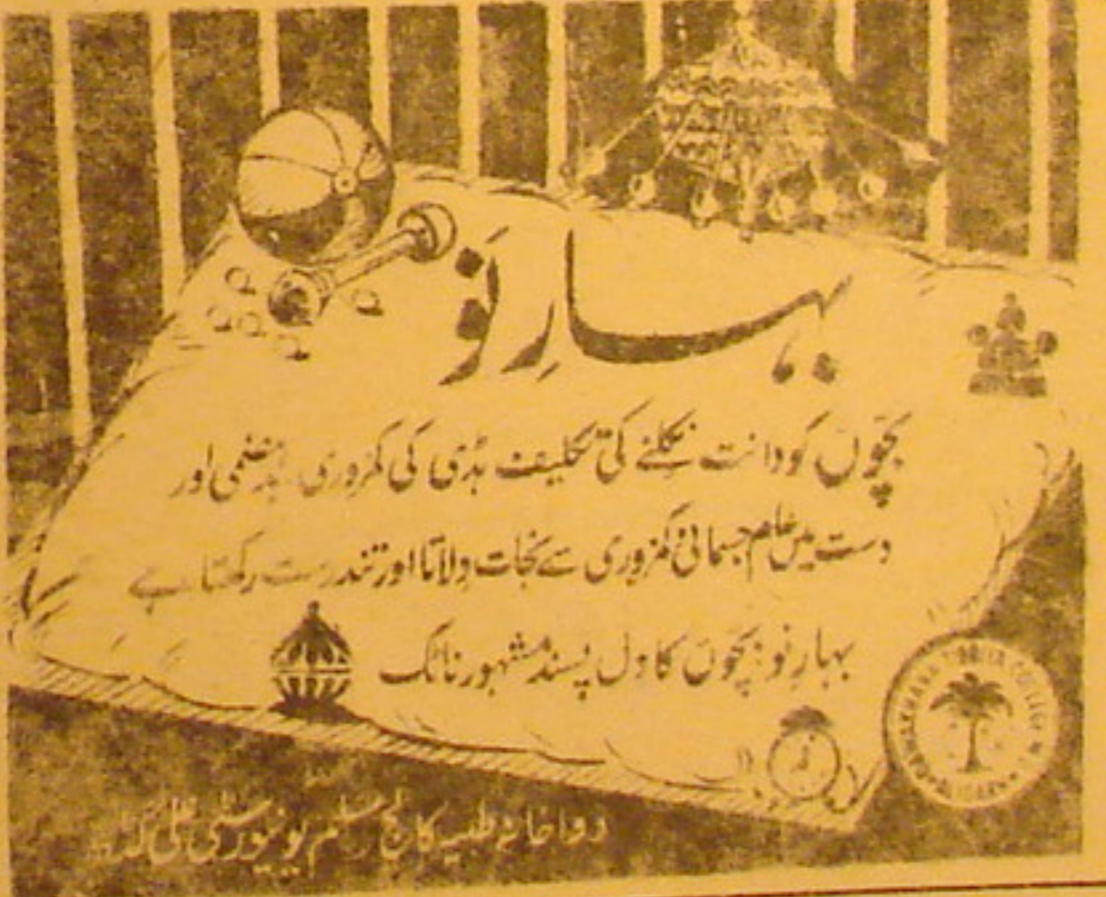 بہارِ نَو
بچّوں کو دانت نکلنے کی تکلیف ہڈی کی کمزوری، بدہضمی اور
دست میں عام جسمانی کمزوری سے نجات دِلاتا اور تندرست رکھتا ہے
بہارِ نو: بچّوں کا دل پسند مشہور ٹانک
DAWAKHANA TIBBIYA COLLEGE M. U. ALIGARH
دواخانہ طبیہ کالج مسلم یونیورسٹی علی گڑھ